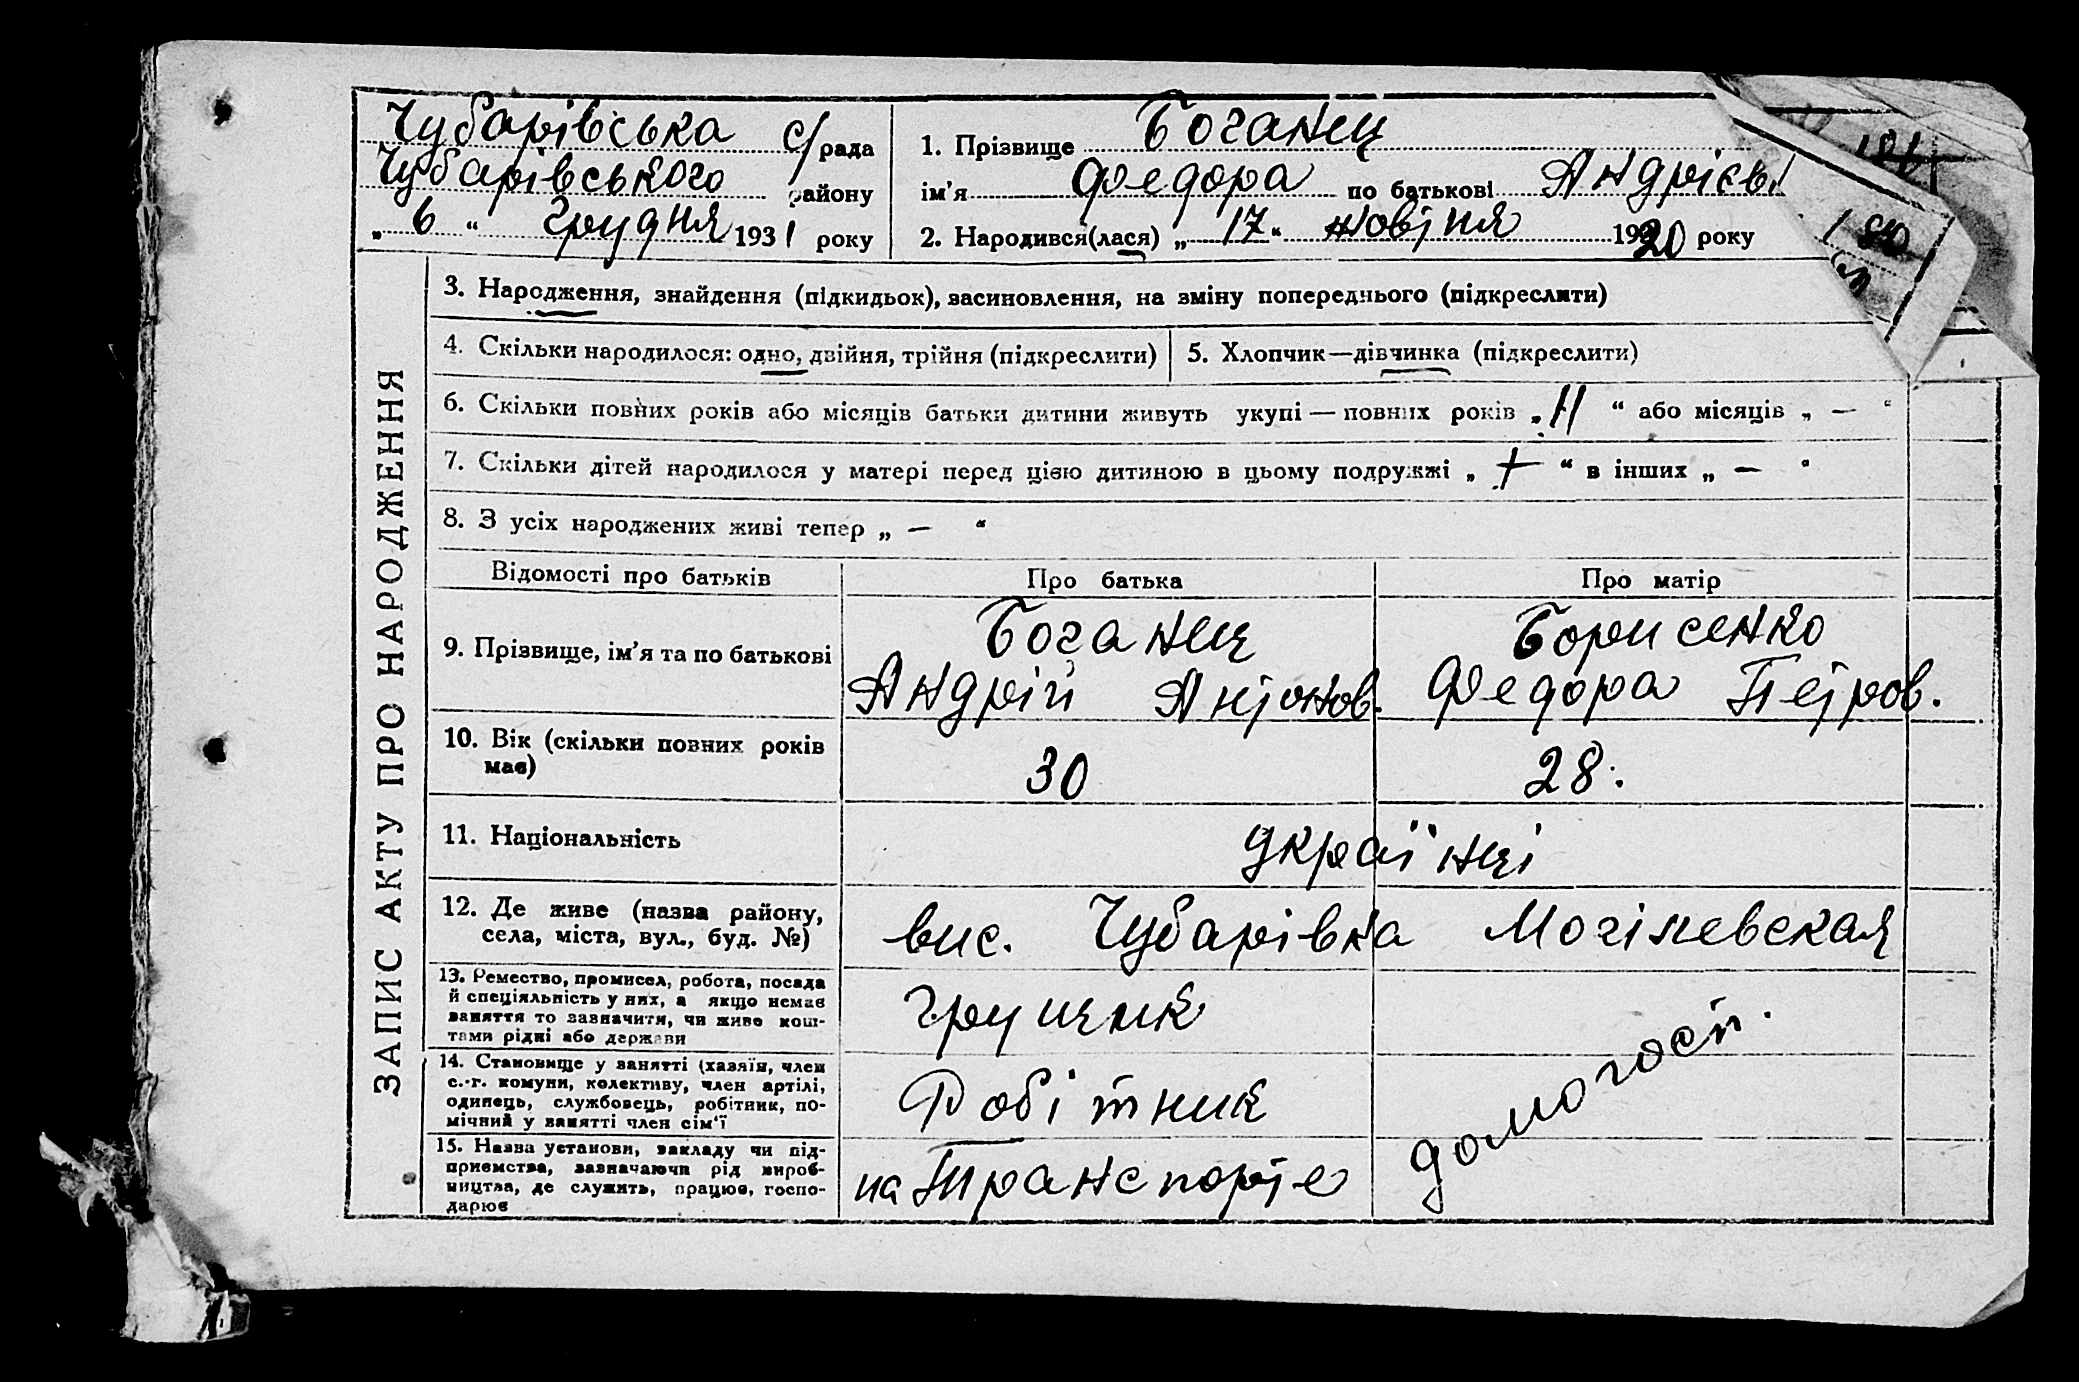 Чубарівська с/рада
Чубарівського району
„ 6 “ грудня 1931 року
1. Прізвище Боганец
ім’я Федора по батькові Андрієв
2. Народився(лася) „ 17 “ жовтня 1920 року
3. Народження, знайдення (підкидьок), засиновлення, на зміну попереднього (підкреслити)
4. Скільки народилося: одно, двійня, трійня (підкреслити)
5. Хлопчик—дівчинка (підкреслити)
6. Скільки повних років або місяців батьки дитини живуть укупі — повних років „ 11 “ або місяців „ — “
7. Скільки дітей народилося у матері перед цією дитиною в цьому подружжі „ + “ в інших „ — “
8. З усіх народжених живі тепер „ — “
ЗАПИС АКТУ ПРО НАРОДЖЕННЯ
Відомості про батьків
Про батька
Про матір
9. Прізвище, ім’я та по батькові
Боганец
Андрій Антонов.
Борисенко
Федора Петров.
10. Вік (скільки повних років
має)
30
28.
11. Національність
Українці
12. Де живе (назва району,
села, міста, вул., буд. №)
вис. Чубарівка Могілевская
13. Ремество, промисел, робота, посада
й спеціяльність у них, а якщо немає
заняття то зазначити, чи живе кош-
тами рідні або держави
грущик
14. Становище у занятті (хазяїн, член
с.-г. комуни, колективу, член артілі,
одинець, службовець, робітник, по-
мічний у занятті член сім’ї
Робітник
15. Назва установи, закладу чи під-
приємства, зазначаючи рід вироб-
ництва, де служить, працює, госпо-
дарює
на Транспорте
домогосп.